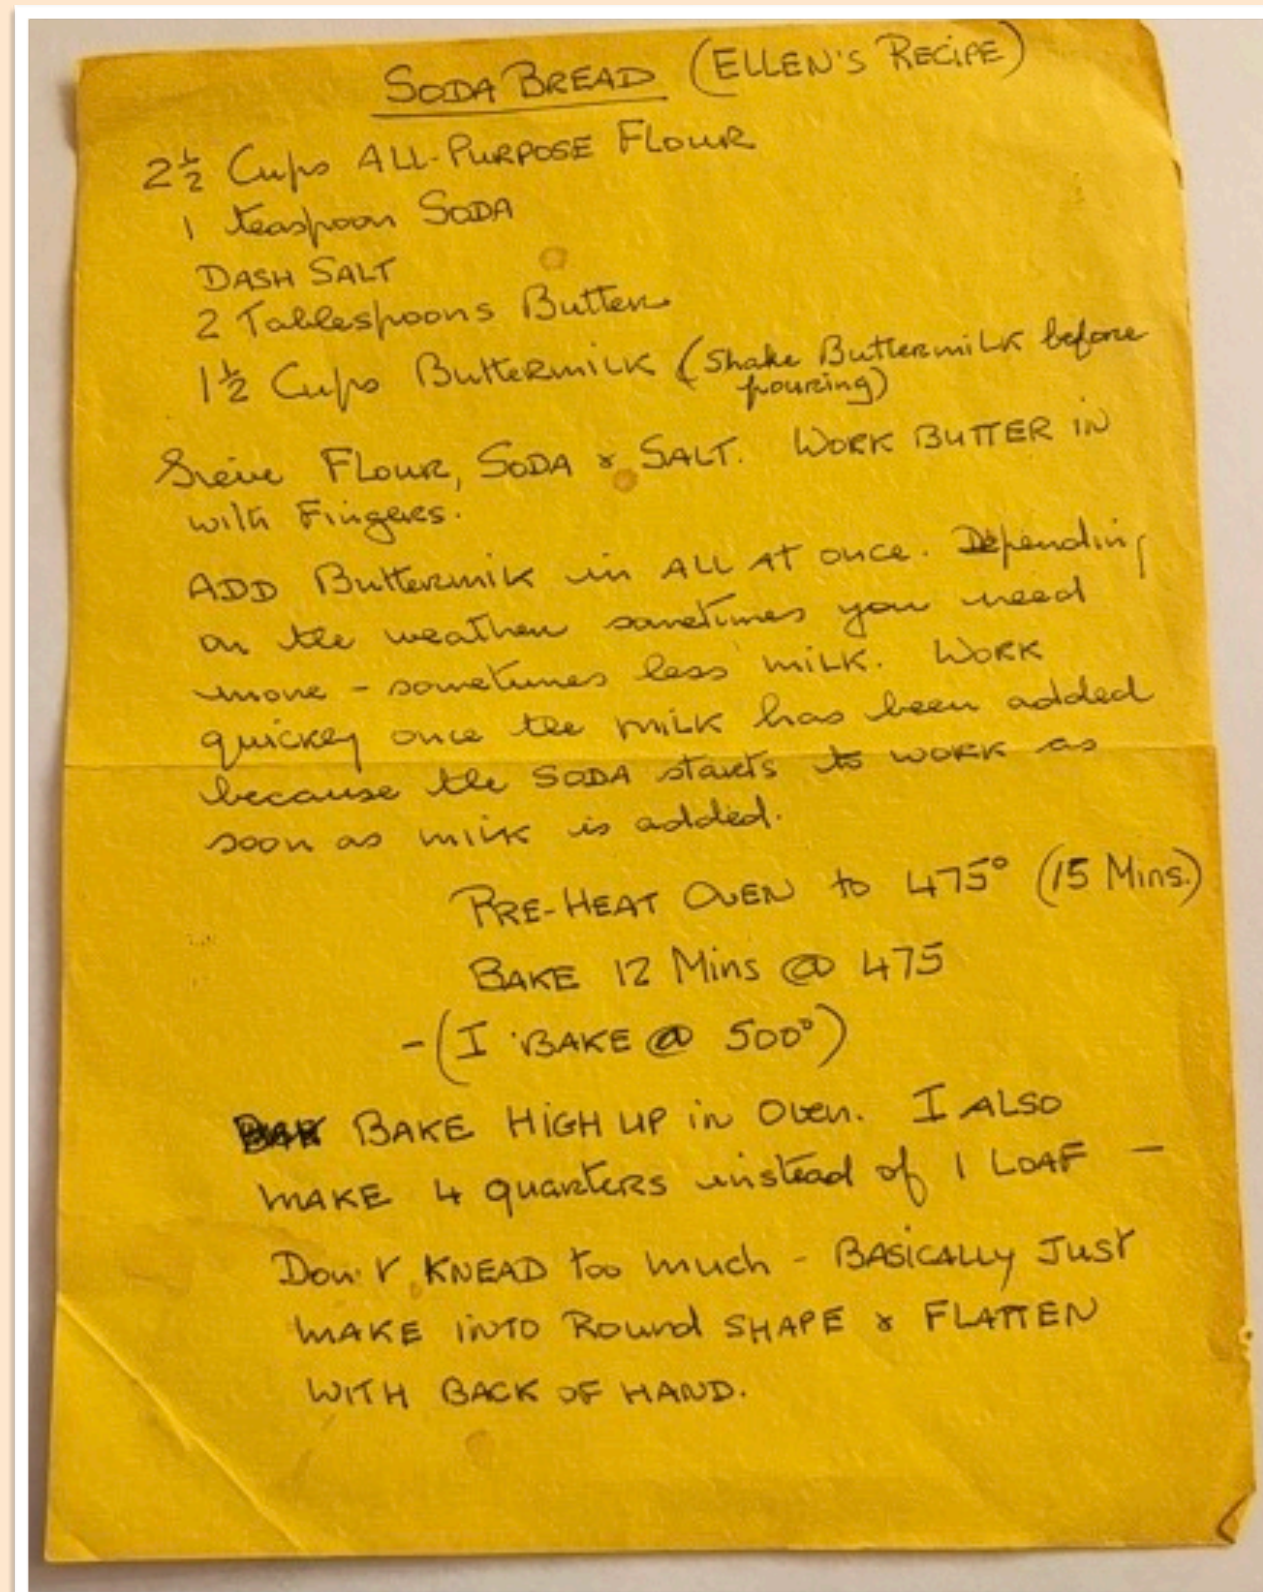 SODA BREAD (ELLEN'S RECIPE)
2½ Cups ALL-PURPOSE FLOUR
1 teaspoon SODA
DASH SALT
2 Tablespoons Butter
1½ Cups ButterMILK (Shake ButtermiLK before
pouring)
Sieve FLOUR, SODA & SALT. WORK BUTTER IN
with Fingers.
ADD Buttermik in ALL AT once. Depending
on the weather sometimes you need
more - sometimes less milk. WORK
quickey once the milk has been added
because the SODA starts to work as
soon as milk is added.
PRE-HEAT OVEN to 475° (15 Mins.)
BAKE 12 Mins @ 475
- (I BAKE @ 500°)
BAKE HIGH UP in Oven. I ALSO
MAKE 4 quarters instead of 1 LOAF -
Don't KNEAD too much - BASICALLY JUST
MAKE INTO Round SHAPE & FLATTEN
WITH BACK OF HAND.